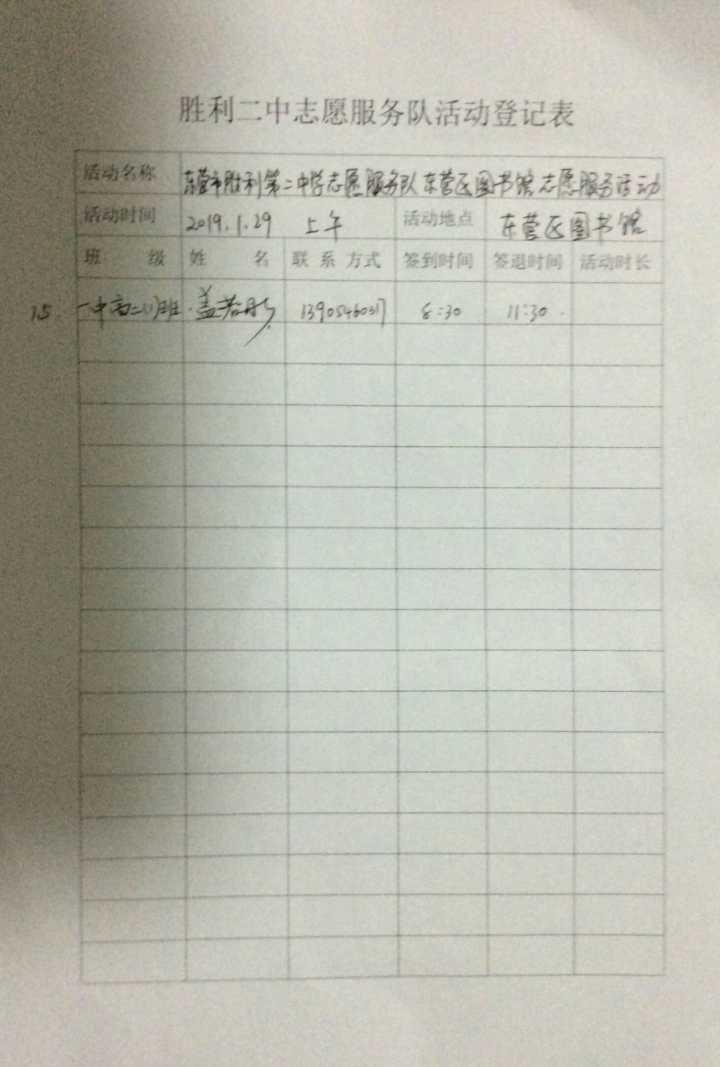 胜利二中志愿服务队活动登记表
活动名称 东营市胜利第二中学志愿服务队东营区图书馆志愿服务活动
活动时间 2019.1.29 上午 活动地点 东营区图书馆
班 级 姓 名 联系方式 签到时间 签退时间 活动时长
15. 一中高二(1)班. 盖若彤 13905460317 8:30 11:30.